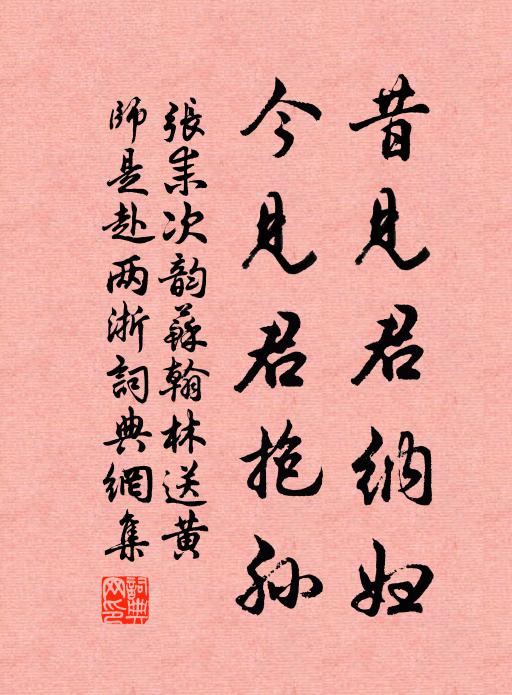 昔見君納婦
今見君抱孫
張耒次韵蘇翰林送黄
師是赴两浙詞典網集
詞典网印